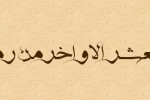 عشر الاواخر من ر